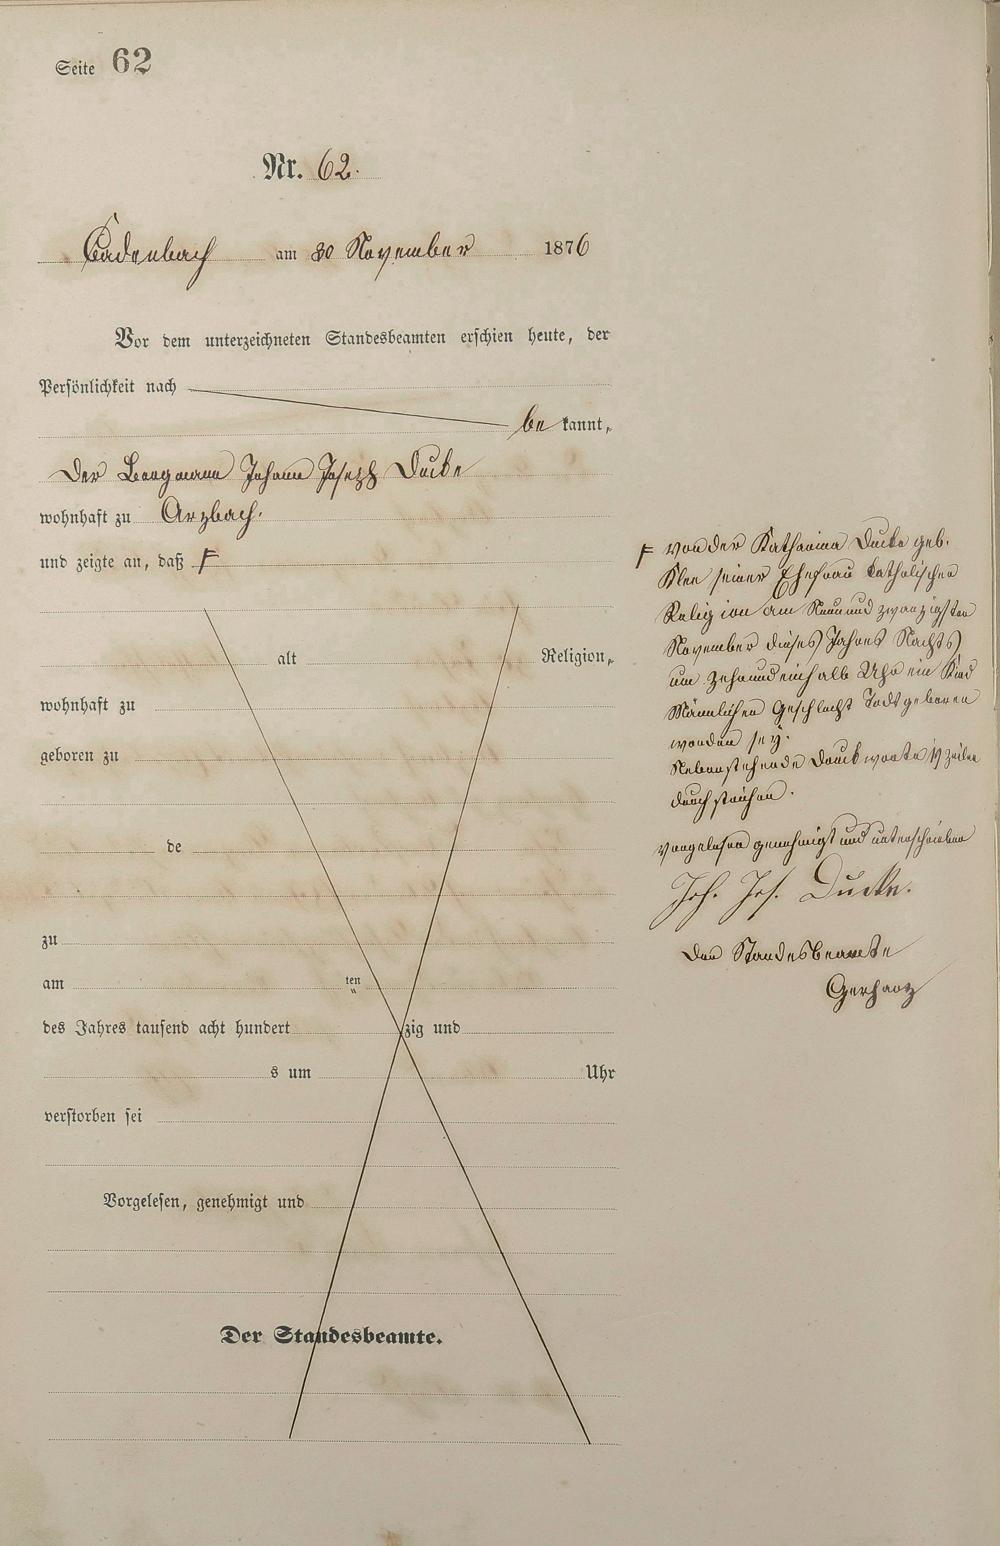 Seite 62
Nr. 62.
Cadenbach am 30 November 1876
Vor dem unterzeichneten Standesbeamten erschien heute, der
Persönlichkeit nach
be kannt,
Der Bergmann Johann Joseph Ducke
wohnhaft zu Arzbach.
und zeigte an, daß F
alt Religion,
wohnhaft zu
geboren zu
de
zu
am ten
des Jahres tausend acht hundert zig und
s um Uhr
verstorben sei
Vorgelesen, genehmigt und
Der Standesbeamte.
F von der Katharina Ducke geb.
Klee seiner Ehefrau katholischer
Religion am Neunundzwanzigsten
November dieses Jahres Nachts
um Zehnundeinhalb Uhr ein Kind
Männlichen Geschlecht Todt geboren
worden sey.
Nebenstehende Druckworte Zeilen
durchstrichen.
Vorgelesen genehmigt und unterschrieben
Joh. Jos. Ducke.
Der Standesbeamte
Gerharz